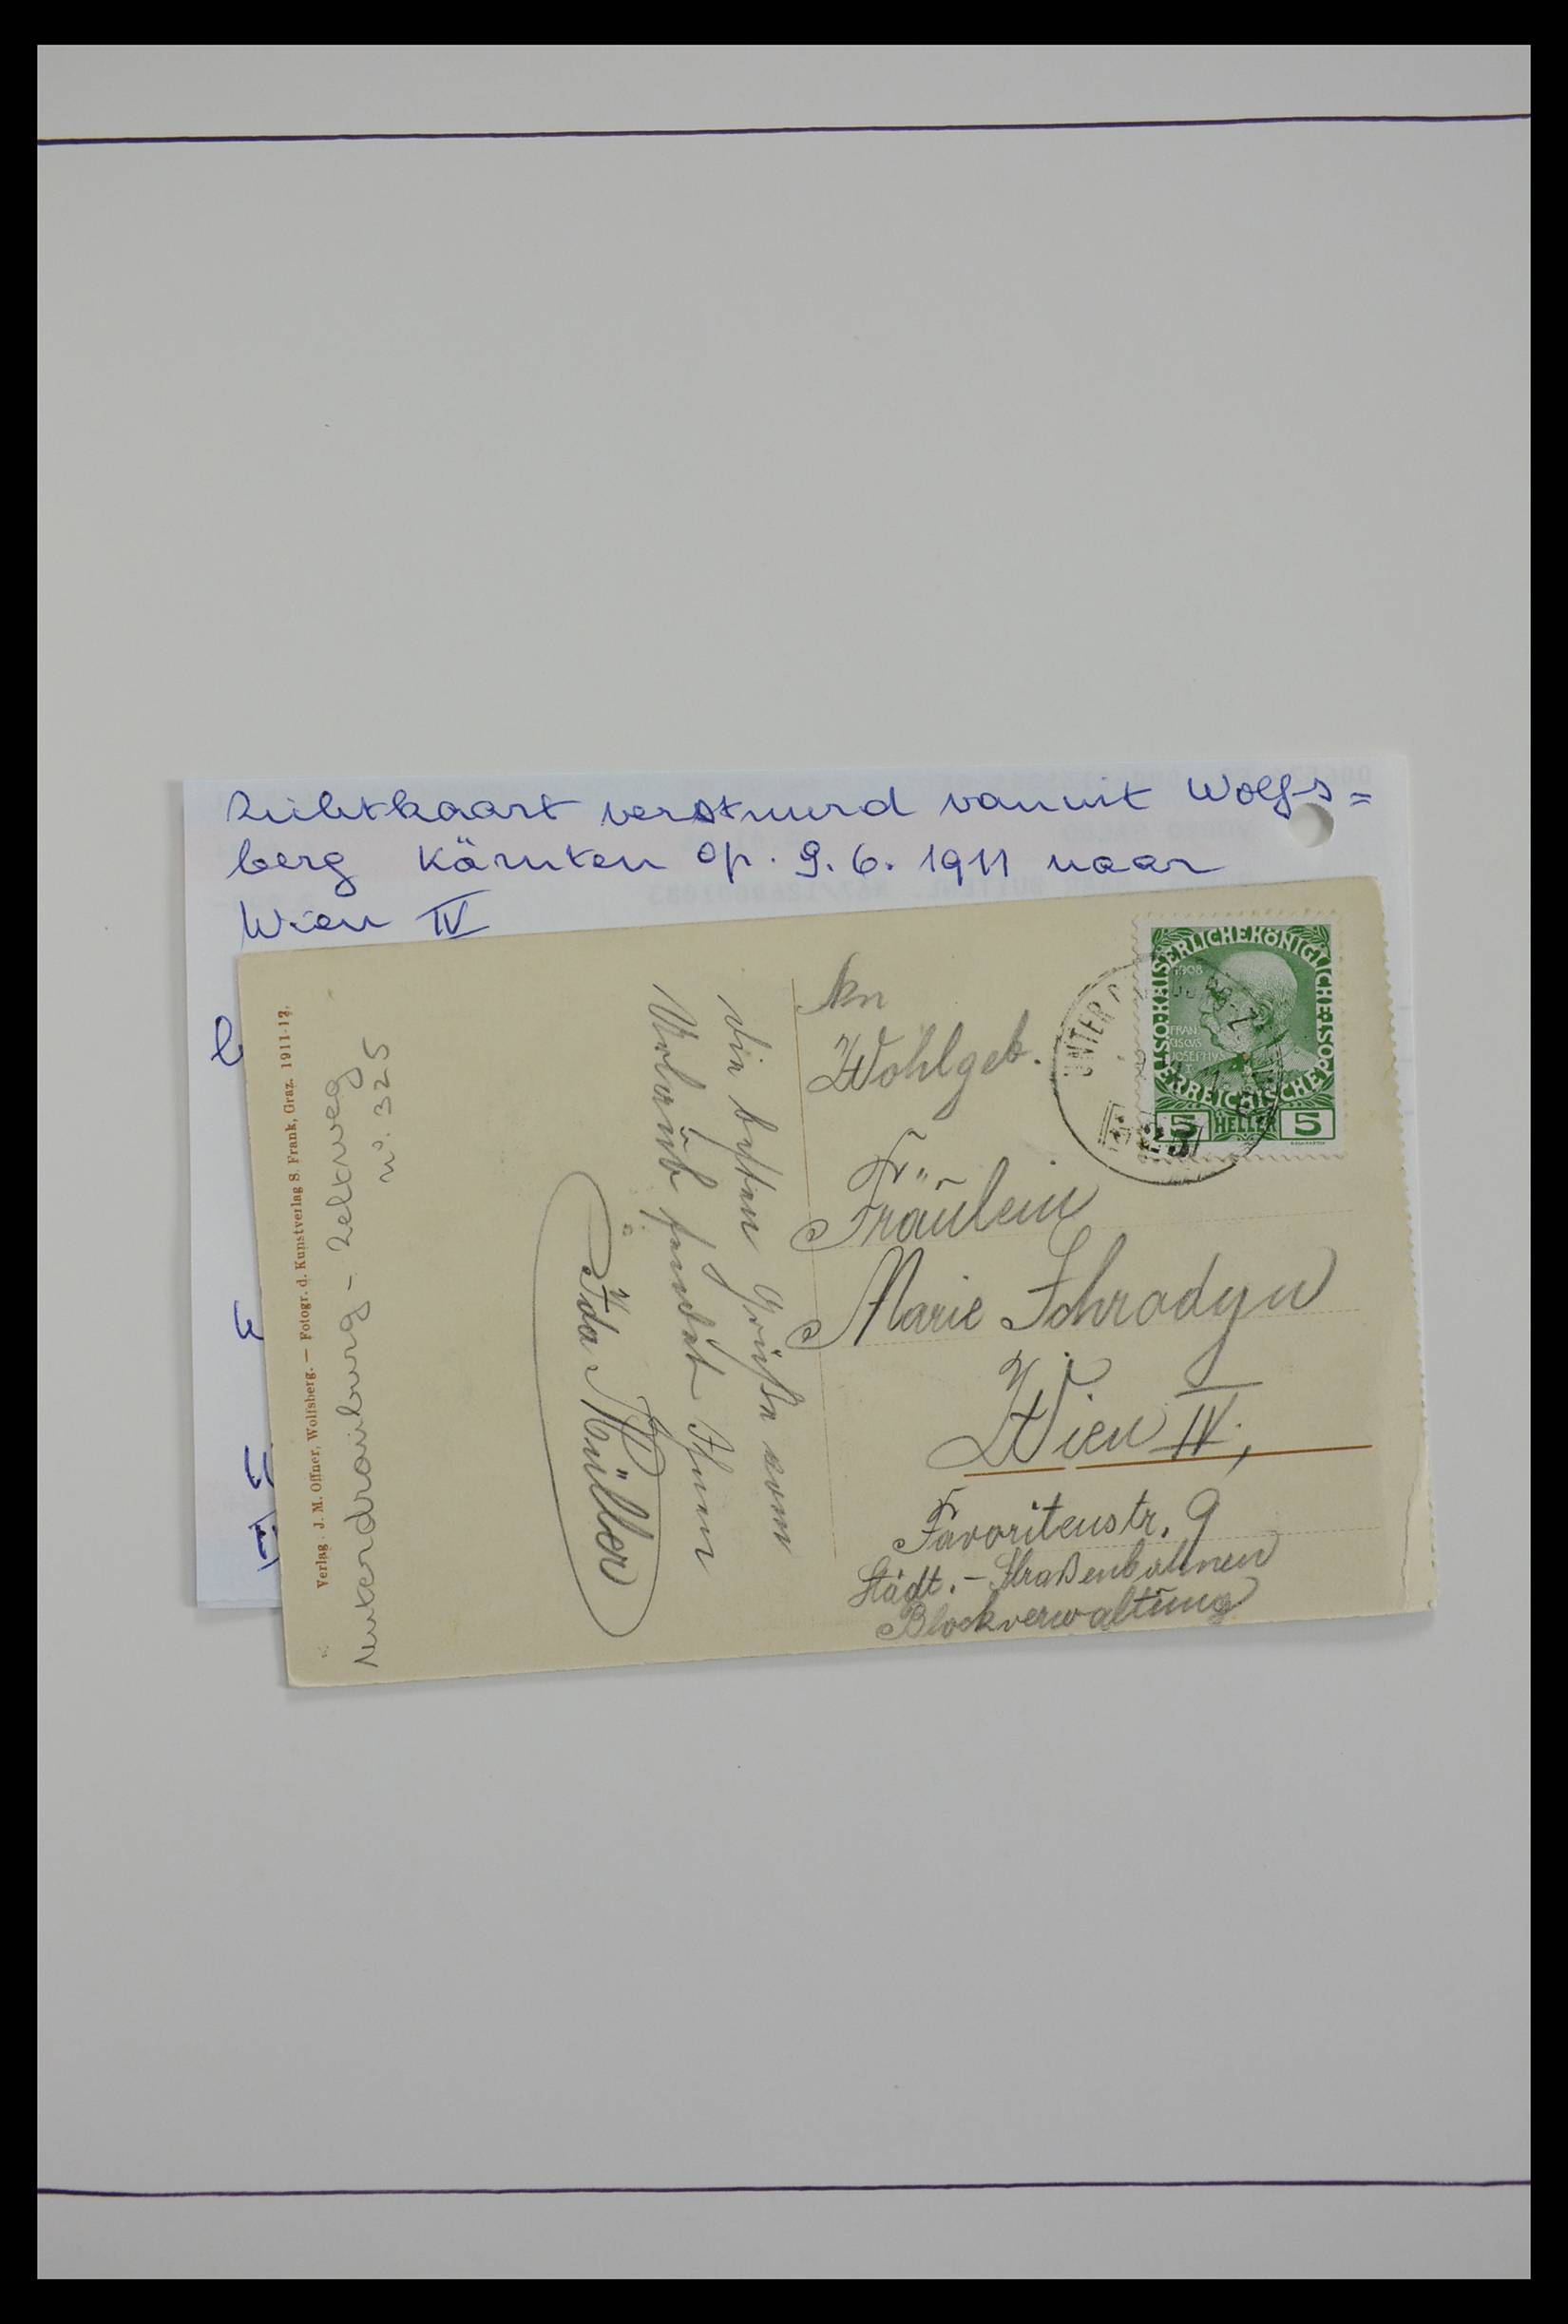 Zichtkaart verstuurd vanuit Wolfs=
berg Kärnten op. 9.6.1911 naar
Wien IV
Verlag. J. M. Offner, Wolfsberg. — Fotogr. d. Kunstverlag S. Frank, Graz. 1911-12.
Unterdrauburg - Zeltweg
no. 325
Die besten Grüße vom
Urlaub sendet Ihnen
Ida Müller
An
Wohlgeb.
Fräulein
Marie Schrodyn
Wien IV,
Favoritenstr. 9
Städt. - Straßenbahnen
Blockverwaltung
KAISERLICHE KÖNIGLICHE ÖSTERREICHISCHE POST
1908
FRAN
CISCVS
JOSEPHVS
I
5 HELLER 5
UNTERD
325